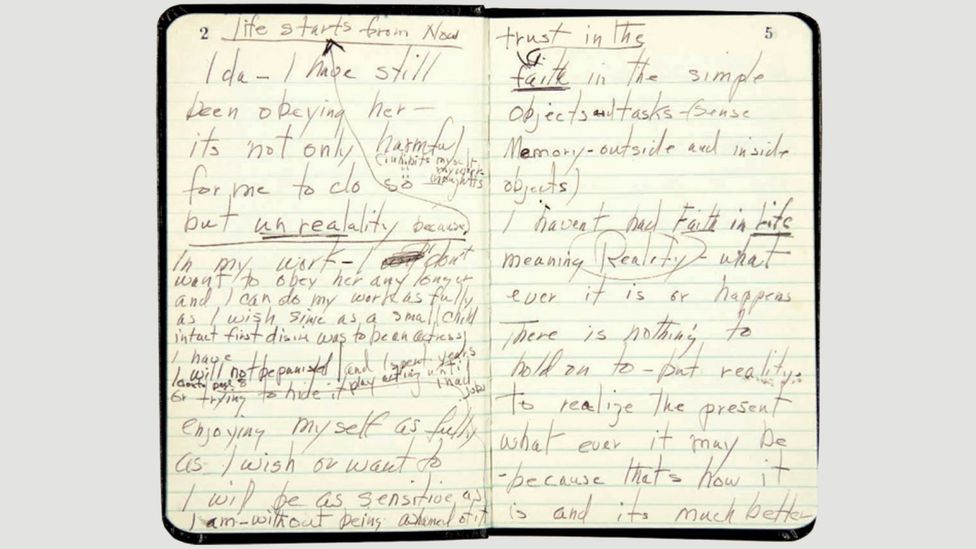 2
life starts from Now
Ida - I have still
been obeying her -
its not only harmful
(inhibits myself
my work
thoughts
for me to do so
but unreality because,
In my work - I don't
want to obey her any longer
and I can do my work as fully
as I wish since as a small child
intact first disire was to be an actress)
I have
I will not be punished and (spent years
play acting until
I had
jobs
or trying to hide it
enjoying myself as fully
as I wish or want to
I will be as sensitive as
I am - without being ashamed of it
5
trust in the
faith in the simple
objects and tasks - (sense
Memory - outside and inside
objects)
I havent had Faith in Life
meaning Reality - what
ever it is or happens
There is nothing to
hold on to - but reality.
to realize the present
what ever it may be
- because thats how it
is and its much better